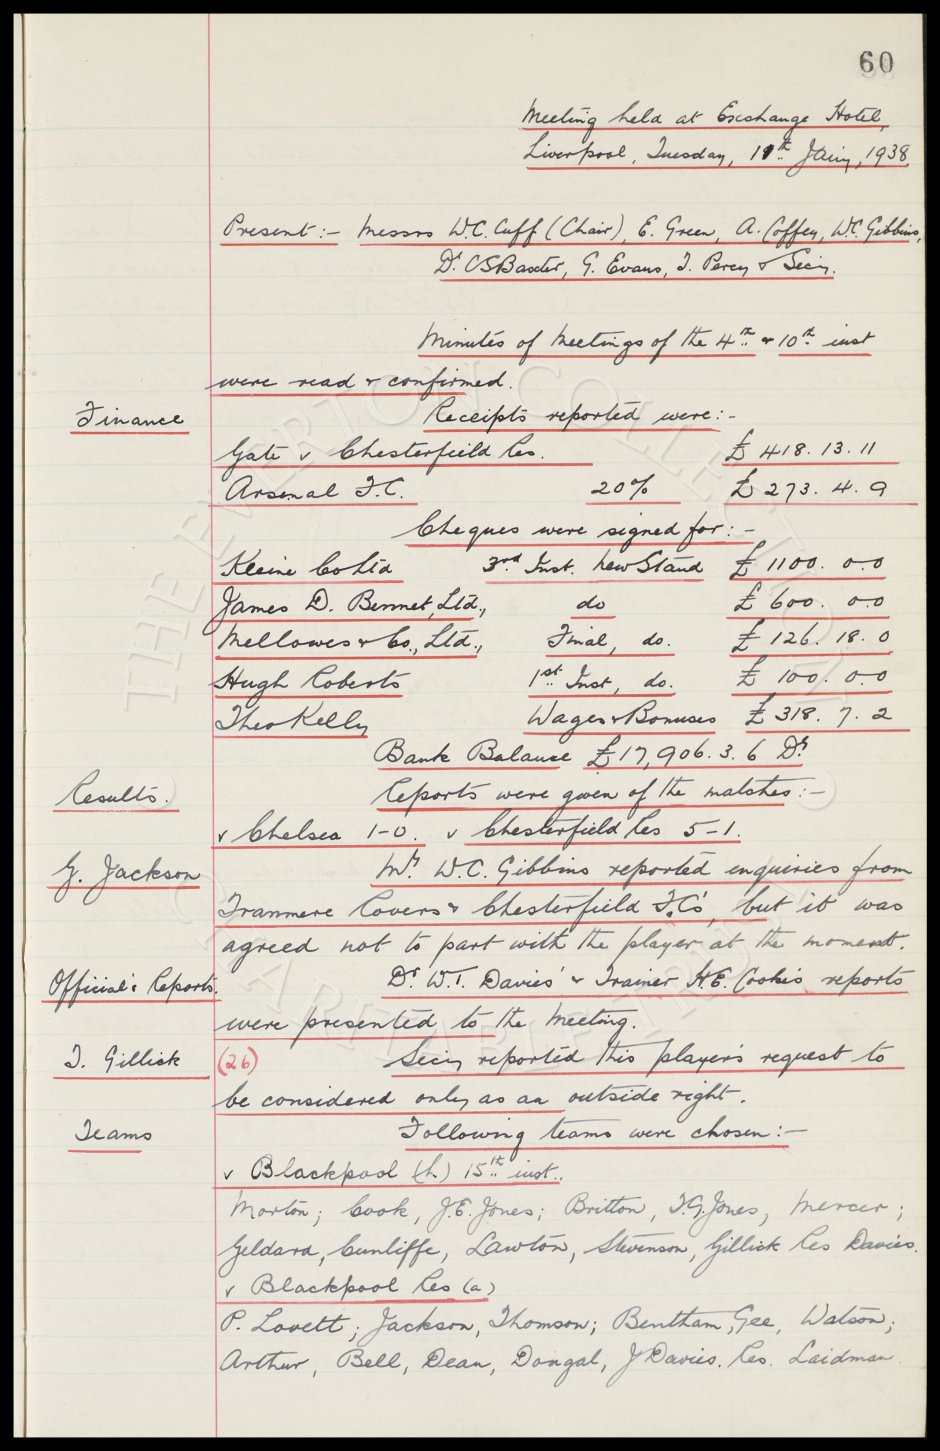 60
Meeting held at Exchange Hotel,
Liverpool, Tuesday, 11th Jany, 1938,
Present:- Messrs W.C. Cuff (Chair), E. Green, A. Coffey, W.C. Gibbins,
Dr CSBaxter, G. Evans, T. Percy & Secy.
Minutes of Meetings of the 4th & 10th inst
were read & confirmed.
Finance Receipts reported were:-
Gate v Chesterfield Res. £ 418. 13. 11
Arsenal F.C. 20% £ 273. 4. 9
Cheques were signed for:-
Kleine Co Ltd 3rd Inst. New Stand £ 1100. 0.0
James D. Bennet, Ltd., do £ 600. 0.0
Mellowes & Co., Ltd., Final, do. £ 126. 18. 0
Hugh Roberts 1st Inst, do. £ 100. 0.0
Theo Kelly Wages & Bonuses £ 318. 7. 2
Bank Balance £17,906. 3. 6 Dr
Results. Reports were given of the matches:-
v Chelsea 1-0. v Chesterfield Res 5-1.
G. Jackson Mr. W.C. Gibbins reported enquiries from
Tranmere Rovers & Chesterfield F.Cs', but it was
agreed not to part with the player at the moment.
Official's Reports. Dr. W.T. Davies' & Trainer H.E. Cooke's reports
were presented to the Meeting.
T. Gillick (26) Secy reported this player's request to
be considered only as an outside right.
Teams Following teams were chosen:-
v Blackpool (h) 15th inst.,
Morton; Cook, J.E. Jones; Britton, T.G. Jones, Mercer;
Geldard, Cunliffe, Lawton, Stevenson, Gillick Res Davies.
v Blackpool Res (a)
P. Lovett; Jackson, Thomson; Bentham, Gee, Watson;
Arthur, Bell, Dean, Dougal, J Davies. Res. Laidman
THE EVERTON COLLECTION
CHARITABLE TRUST